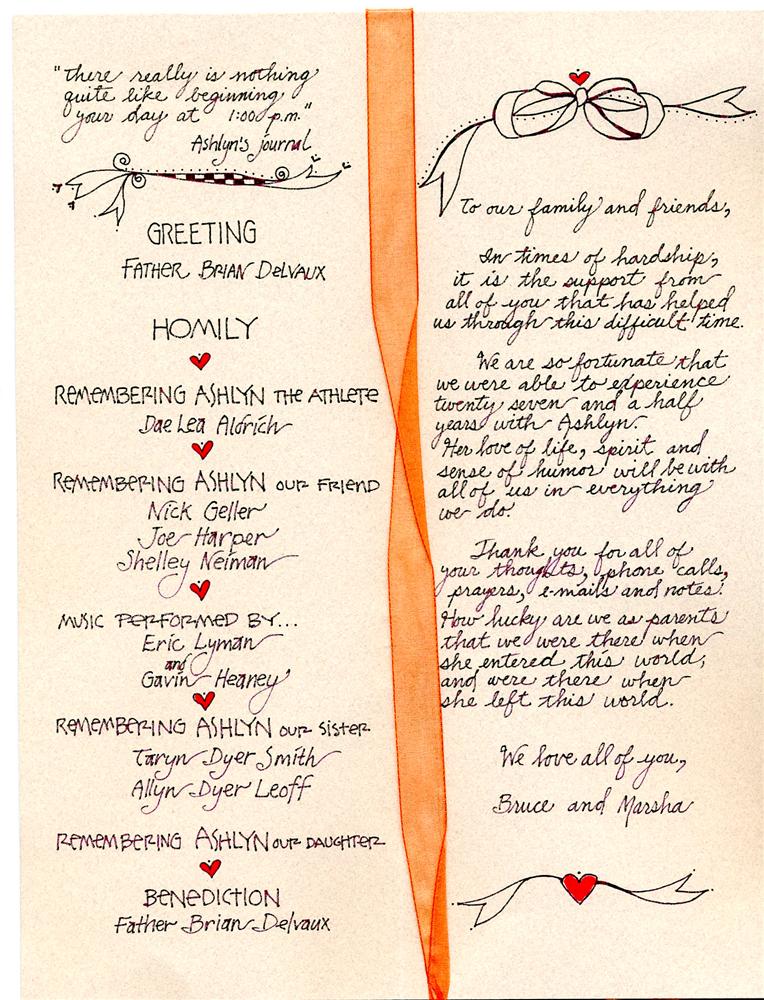 "There really is nothing
quite like beginning
your day at 1:00 p.m."
Ashlyn's journal
GREETING
FATHER BRIAN DELVAUX
HOMILY
REMEMBERING ASHLYN THE ATHLETE
Dae Lea Aldrich
REMEMBERING ASHLYN OUR FRIEND
Nick Geller
Joe Harper
Shelley Neiman
MUSIC PERFORMED BY...
Eric Lyman
and
Gavin Heaney
REMEMBERING ASHLYN OUR SISTER
Taryn Dyer Smith
Allyn Dyer Leoff
REMEMBERING ASHLYN OUR DAUGHTER
BENEDICTION
Father Brian Delvaux
To our family and friends,
In times of hardship,
it is the support from
all of you that has helped
us through this difficult time.
We are so fortunate that
we were able to experience
twenty seven and a half
years with Ashlyn.
Her love of life, spirit and
sense of humor will be with
all of us in everything
we do.
Thank you for all of
your thoughts, phone calls,
prayers, e-mails and notes.
How lucky are we as parents
that we were there when
she entered this world,
and were there when
she left this world.
We love all of you,
Bruce and Marsha